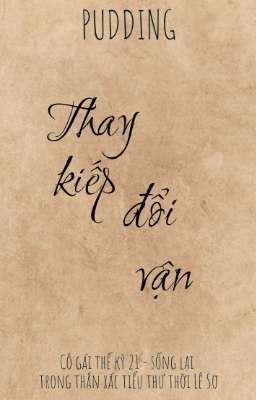 PUDDING
Thay
kiếp
đổi
vận
CÔ GÁI THẾ KỶ 21 - SỐNG LẠI
TRONG THÂN XÁC TIỂU THƯ THỜI LÊ SƠ